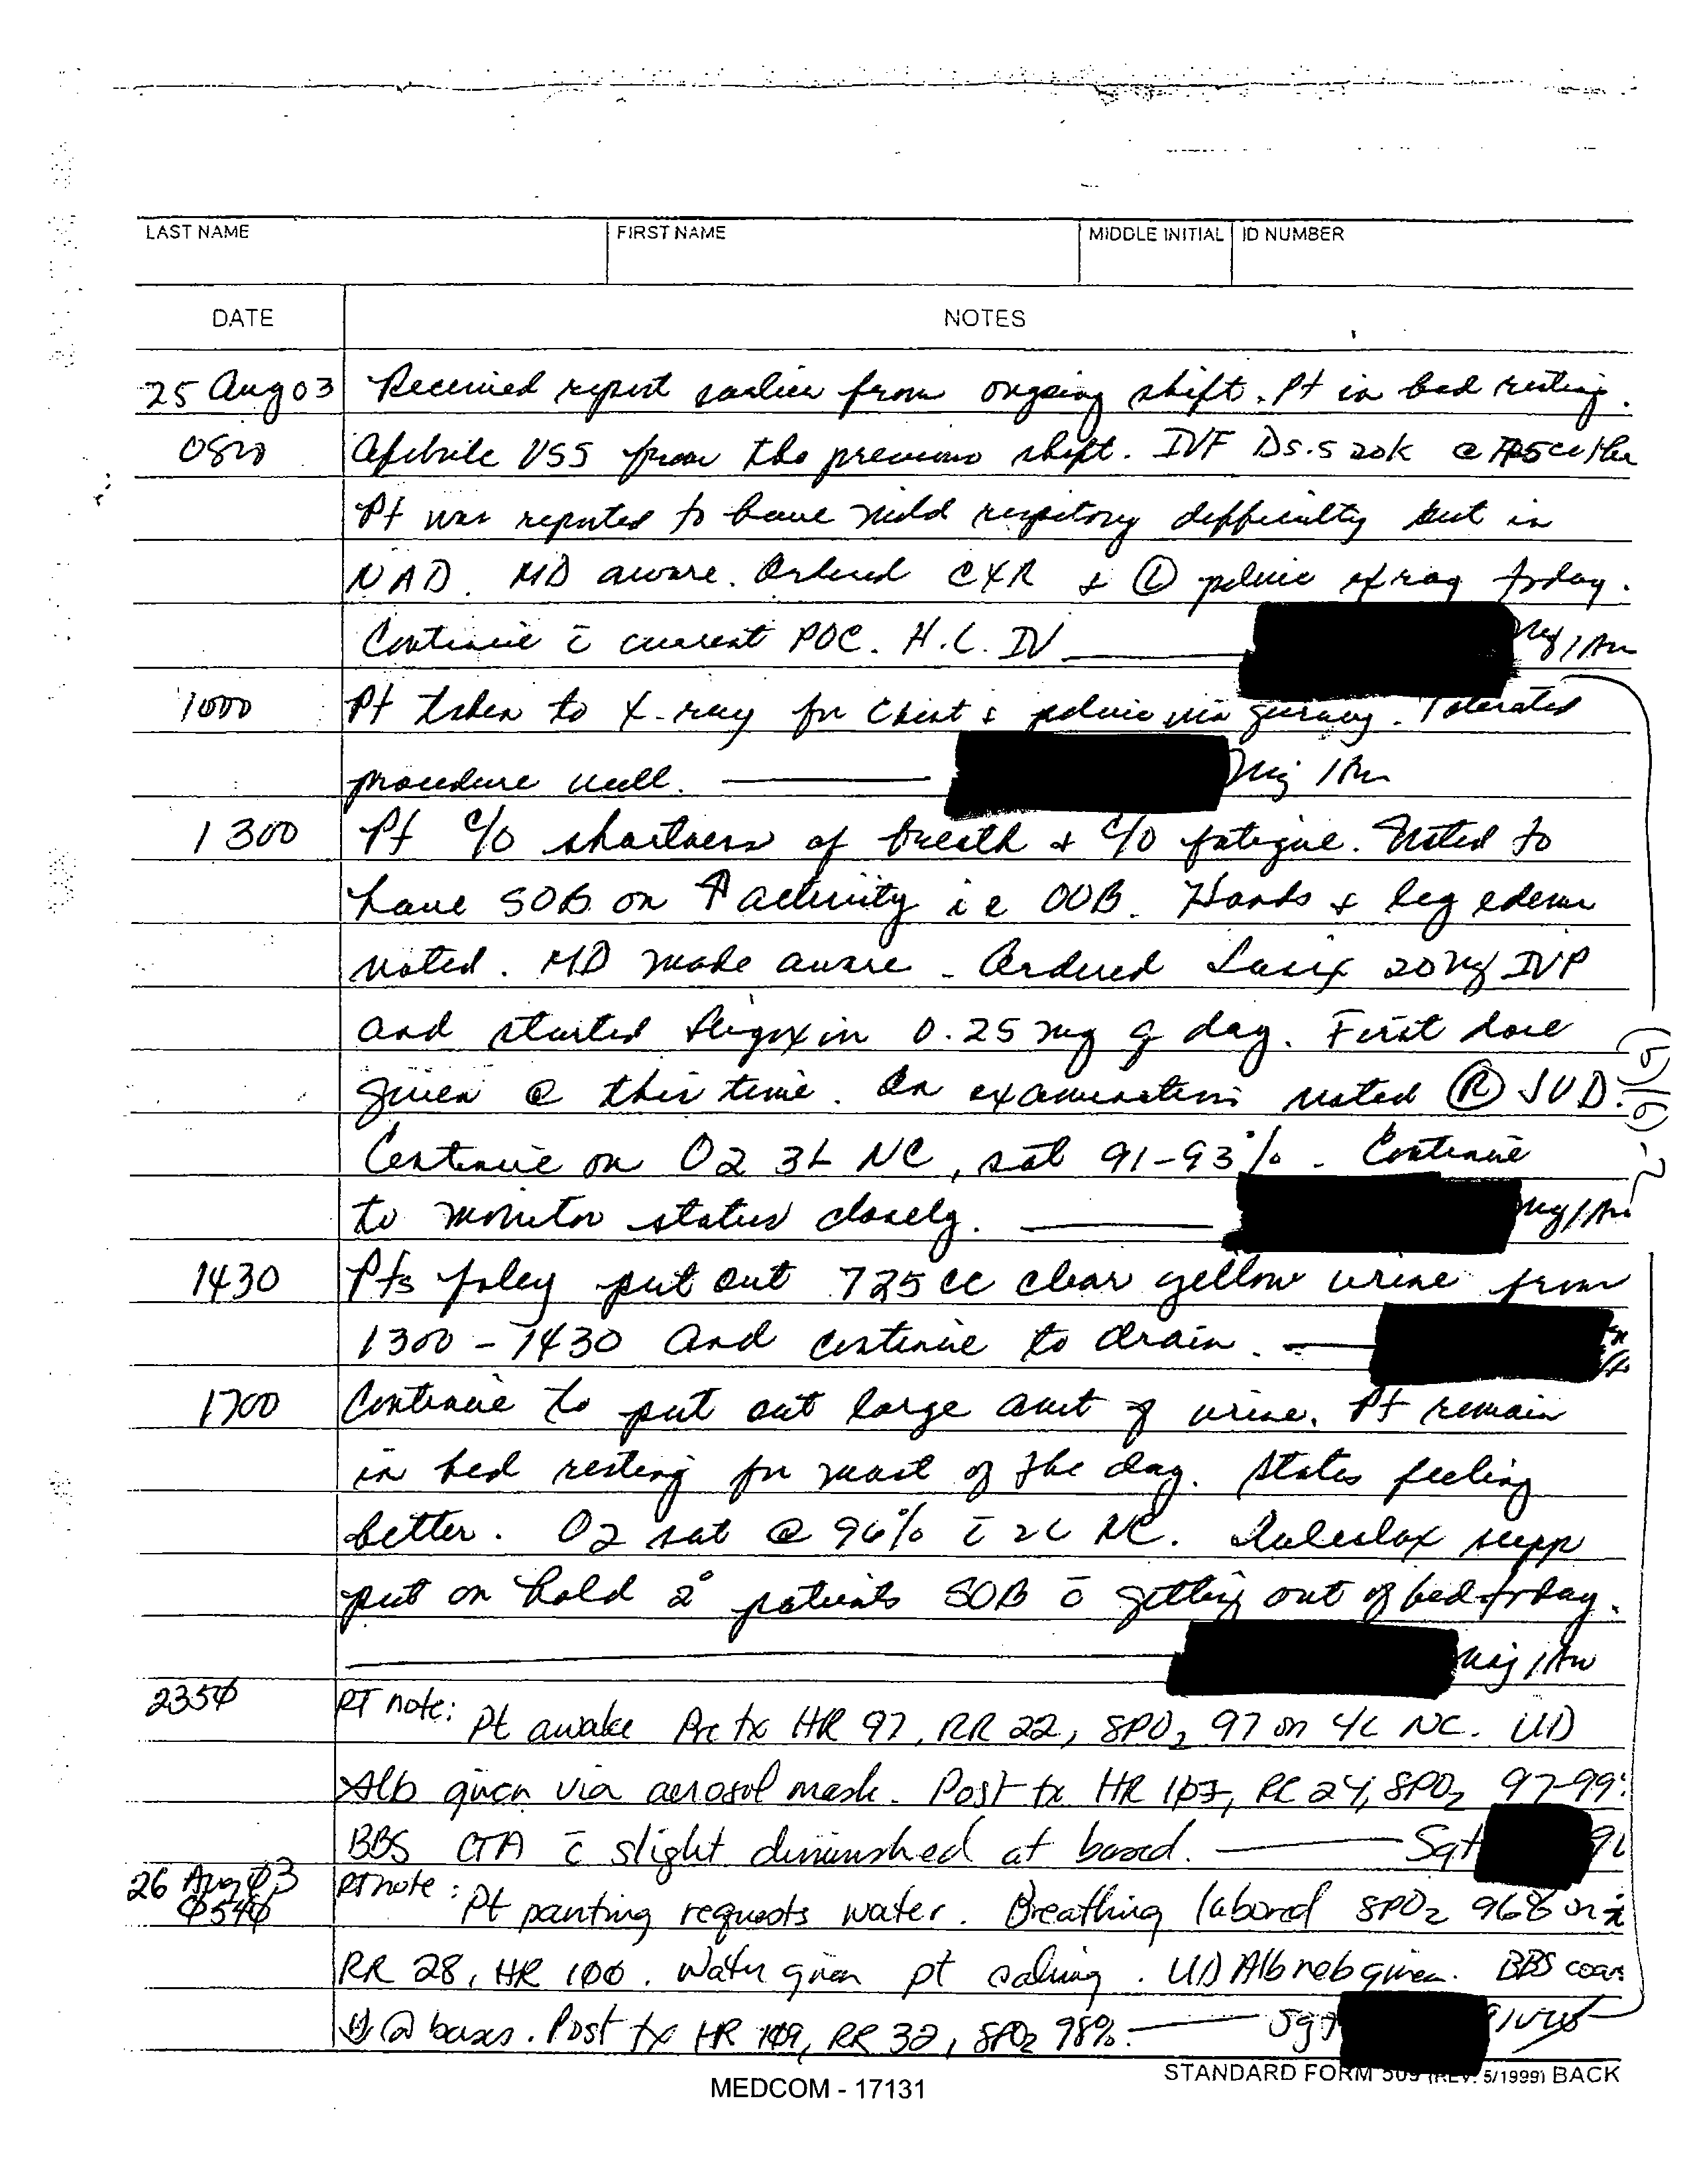 LAST NAME FIRST NAME MIDDLE INITIAL ID NUMBER
DATE NOTES
25 Aug 03 Received report earlier from ongoing shift. Pt in bed resting.
Afebrile VSS from the previous shift. IVF D5.5 20K @
Pt was reported to have mild respitory difficulty but in
NAD. MD aware. Ordered CXR & Ⓛ pelvic xray today.
Continue c̄ current POC. H.L. IV
1000 Pt taken to X-ray for Chest & pelvic via gurney. Tolerated
procedure well.
1300 Pt c/o shortness of breath & c/o fatigue. Noted to
have SOB on ↑ activity ie OOB. Hands & leg edema
noted. MD made aware - Ordered Lasix 20mg IVP
and started Digoxin 0.25 mg q day. First dose
given @ this time. On examination noted Ⓡ JVD.
Continue on O2 3L NC, sat 91-93% - Continue
to monitor status closely.
1430 Pts foley put out 725 cc clear yellow urine from
1300 - 1430 and continue to drain.
1700 Continue to put out large amt of urine. Pt remain
in bed resting for most of the day. States feeling
better. O2 sat @ 96% c̄ 2L NC. Dulcolax supp
put on hold 2° patients SOB c̄ getting out of bed today.
235∅ RT note: Pt awake Pre tx HR 97, RR 22, SPO2 97 on 4L NC. UD
Alb given via aerosol mask. Post tx HR 1∅7, RR 24, SPO2 97-99%
BBS CTA c̄ slight diminished at based. Sgt
26 Aug ∅3 RT note: Pt panting requests water. Breathing labored SPO2 96%
∅54∅ RR 28, HR 1∅∅. Water given pt . UD Alb neb given. BBS
↓ @ bases. Post tx HR 1∅9, RR 32, SPO2 98%. Sgt
STANDARD FORM 509 (REV. 5/1999) BACK
MEDCOM - 17131